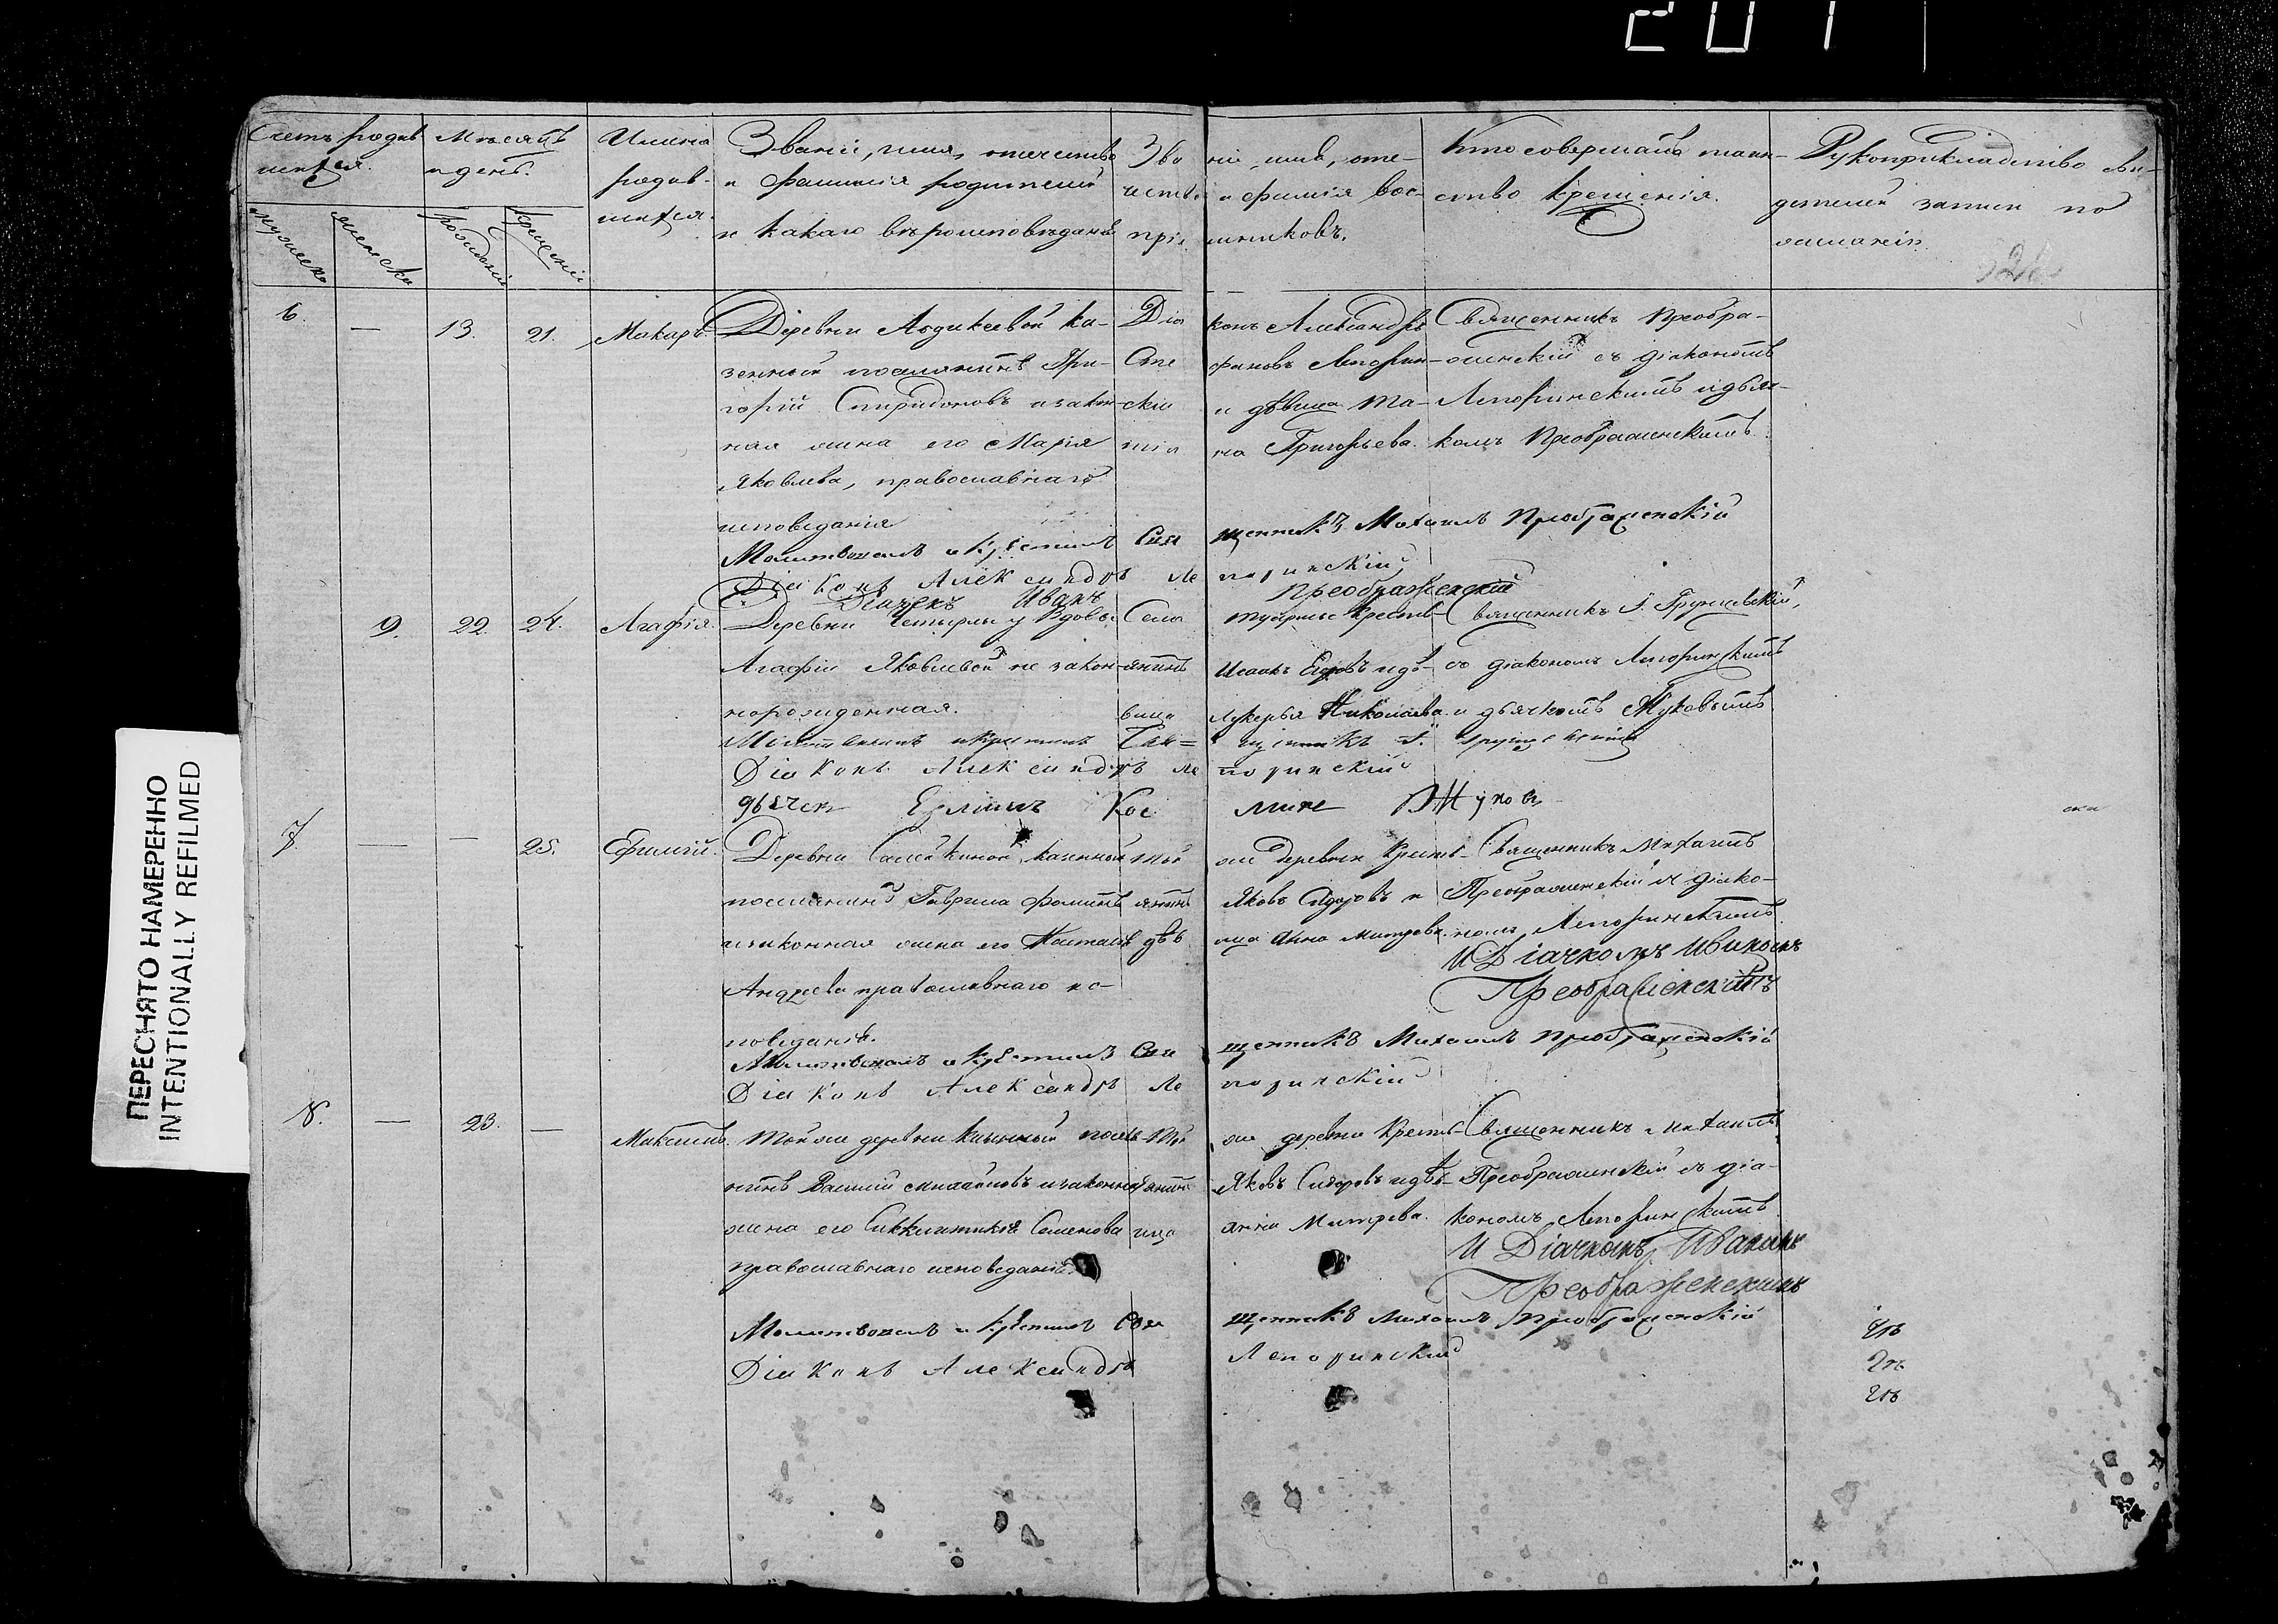 201
Счетъ родив-
шихся.
Мѣсяцъ
и день.
Имена
родив-
шихся.
Званіе, имя, отчество
и фамилія родителей
и какаго вѣроисповѣданія
Званіе, имя, оте-
чество и фамилія вос-
пріемниковъ.
Кто совершалъ таин-
ство крещенія.
Рукоприкладство сви-
детелей записи по
желанію.
мужеска
женска
рожденія
крещенія
6. — 13. 21. Макаръ.
Деревни Авдикеевой ка-
зенный поселянинъ Гри-
горій Спиридоновъ и закон-
ная жена его Марія
Яковлева, православнаго
исповеданія
Діаконъ Александръ
Стефановъ Лепорин-
скій и дѣвица Та-
тіана Григорьева.
Священникъ Преобра-
женскій съ діакономъ
Лепоринскимъ и дьяч-
комъ Преображенскимъ.
Молитвовалъ и крестилъ Священникъ Михаилъ Преображенскій
Діаконъ Александръ Лепоринскій
Діачекъ Иванъ Преображенскій
9. 22. 24. Агафія.
Деревни у вдовы
Агафіи Яковлевой не закон-
норожденная.
Села крестьянинъ
Исаакъ Егоровъ и дѣ-
вица Лукерья Николаева
Священникъ І. Грушевскій,
съ діакономъ Лепоринскимъ
и дьячкомъ Жуковымъ
Молитвовалъ и крестилъ Священникъ І. Грушевскій
Діаконъ Александръ Лепоринскій
дьячекъ Жуковъ
7. — — 25. Ефимій.
Деревни казенный
поселянинъ Гаврила Фоминъ
и законная жена его Настасья
Андреева православнаго ис-
поведанія.
Той же деревни крестьянинъ
Яковъ Сидоровъ и
дѣвица Анна Митрева.
Священникъ Михаилъ
Преображенскій съ діако-
номъ Лепоринскимъ
И Діачкомъ Иваномъ
Преображенскимъ
Молитвовалъ и крестилъ Священникъ Михаилъ Преображенскій
Діаконъ Александръ Лепоринскій
8. — 23. — Максимъ.
Той же деревни казенный посел-
янинъ Василій и законная
жена его Семенова
православнаго исповеданія.
Той же деревни крестьянинъ
Яковъ Сидоровъ и дѣвица
Анна Митрева.
Священникъ Михаилъ
Преображенскій съ діа-
кономъ Лепоринскимъ
И Діачкомъ Иваномъ
Преображенскимъ
Молитвовалъ и крестилъ Священникъ Михаилъ Преображенскій
Діаконъ Александръ Лепоринскій
ПЕРЕСНЯТО НАМЕРЕННО
INTENTIONALLY REFILMED